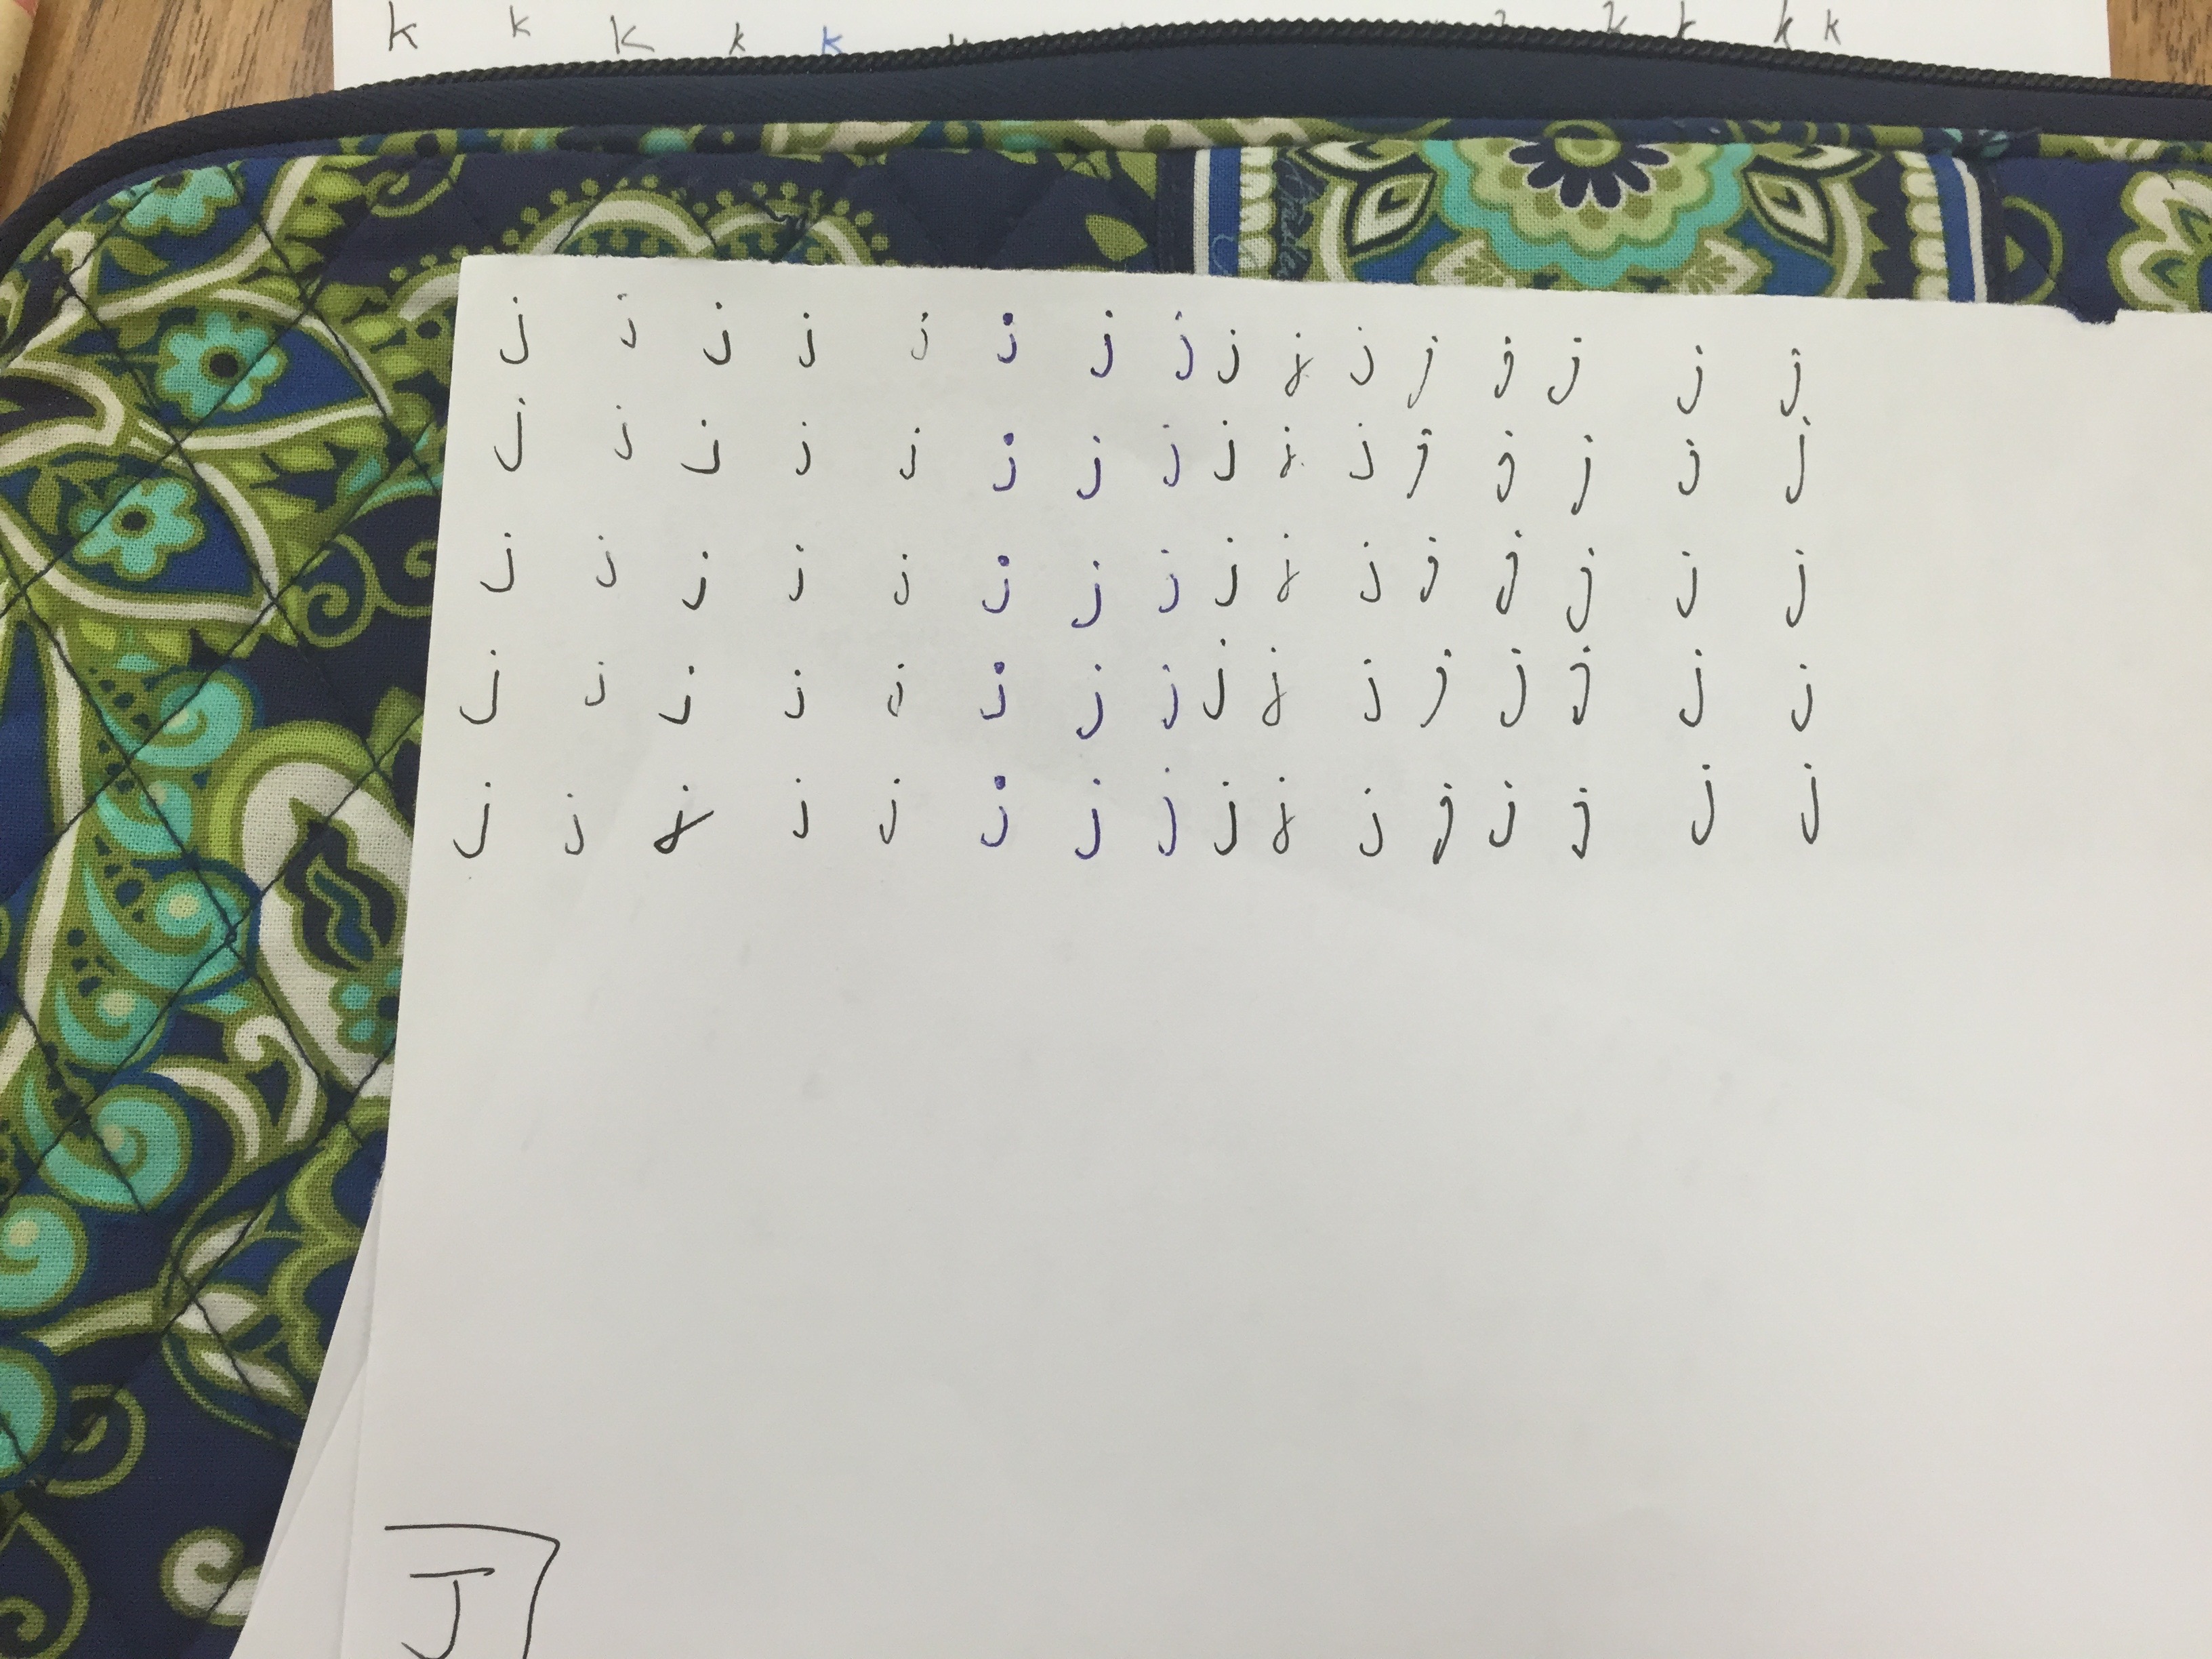 k k K k k k k k k
j j j j j j j j j j j j j j j j
j j j j j j j j j j j j j j j j
j j j j j j j j j j j j j j j j
j j j j j j j j j j j j j j j j
j j j j j j j j j j j j j j j j
J